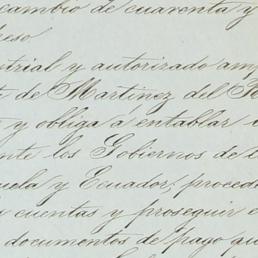 cambio de cuarenta y
eso
trial y autorizado am
t de Martinez del
y y obliga a entablar
nte los Gobiernos de
uela y Ecuador, proced
cuentas y proseguir
documentos de pago qu